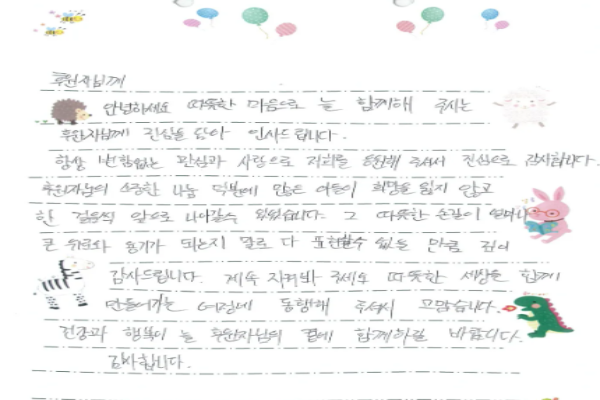 후원자님께
안녕하세요 따뜻한 마음으로 늘 함께해 주시는
후원자님께 진심을 담아 인사드립니다.
항상 변함없는 관심과 사랑으로 저희를 응원해 주셔서 진심으로 감사합니다.
후원자님의 소중한 나눔 덕분에 많은 이들이 희망을 잃지 않고
한 걸음씩 앞으로 나아갈수 있었습니다. 그 따뜻한 손길이 얼마나
큰 위로와 용기가 되는지 말로 다 표현할수 없을 만큼 깊이
감사드립니다. 계속 지켜봐 주세요 따뜻한 세상을 함께
만들어가는 여정에 동행해 주셔서 고맙습니다.
건강과 행복이 늘 후원자님의 곁에 함께하길 바랍니다.
감사합니다.